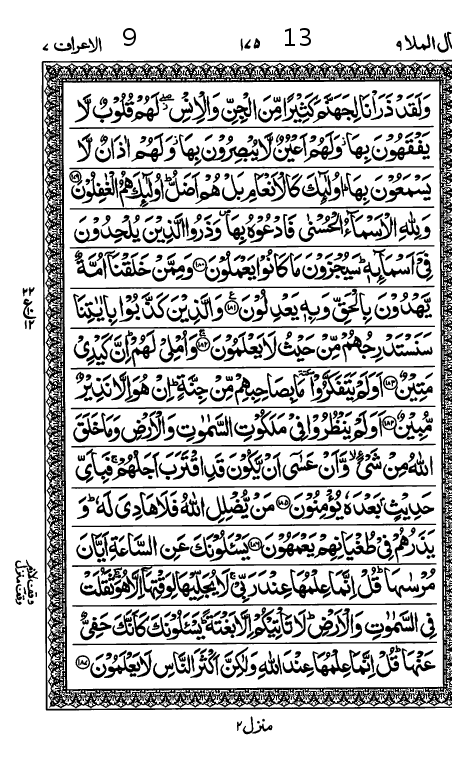 قال الملا ٩ 13 ١٧٥ 9 الاعراف ٧
وَلَقَدْ ذَرَاْنَا لِجَهَنَّمَ كَثِيْرًا مِّنَ الْجِنِّ وَالْاِنْسِ ۖ لَهُمْ قُلُوْبٌ لَّا
يَفْقَهُوْنَ بِهَا ۫ وَلَهُمْ اَعْيُنٌ لَّا يُبْصِرُوْنَ بِهَا ۫ وَلَهُمْ اٰذَانٌ لَّا
يَسْمَعُوْنَ بِهَا ؕ اُولٰٓئِكَ كَالْاَنْعَامِ بَلْ هُمْ اَضَلُّ ؕ اُولٰٓئِكَ هُمُ الْغٰفِلُوْنَ ﴿۱۷۹﴾
وَلِلّٰهِ الْاَسْمَآءُ الْحُسْنٰى فَادْعُوْهُ بِهَا ۪ وَذَرُوا الَّذِيْنَ يُلْحِدُوْنَ
فِيْٓ اَسْمَآئِهٖ ؕ سَيُجْزَوْنَ مَا كَانُوْا يَعْمَلُوْنَ ﴿۱۸۰﴾ وَمِمَّنْ خَلَقْنَآ اُمَّةٌ
يَّهْدُوْنَ بِالْحَقِّ وَبِهٖ يَعْدِلُوْنَ ﴿۱۸۱﴾ ع وَالَّذِيْنَ كَذَّبُوْا بِاٰيٰتِنَا
٢٢
ع
١٢
سَنَسْتَدْرِجُهُمْ مِّنْ حَيْثُ لَا يَعْلَمُوْنَ ﴿۱۸۲﴾ وَاُمْلِيْ لَهُمْ ؕ اِنَّ كَيْدِيْ
مَتِيْنٌ ﴿۱۸۳﴾ اَوَلَمْ يَتَفَكَّرُوْا ٚ مَا بِصَاحِبِهِمْ مِّنْ جِنَّةٍ ؕ اِنْ هُوَ اِلَّا نَذِيْرٌ
مُّبِيْنٌ ﴿۱۸۴﴾ اَوَلَمْ يَنْظُرُوْا فِيْ مَلَكُوْتِ السَّمٰوٰتِ وَالْاَرْضِ وَمَا خَلَقَ
اللّٰهُ مِنْ شَيْءٍ ۙ وَّاَنْ عَسٰٓى اَنْ يَّكُوْنَ قَدِ اقْتَرَبَ اَجَلُهُمْ ۚ فَبِاَيِّ
حَدِيْثٍۭ بَعْدَهٗ يُؤْمِنُوْنَ ﴿۱۸۵﴾ مَنْ يُّضْلِلِ اللّٰهُ فَلَا هَادِيَ لَهٗ ؕ وَ
يَذَرُهُمْ فِيْ طُغْيَانِهِمْ يَعْمَهُوْنَ ﴿۱۸۶﴾ يَسْـَٔلُوْنَكَ عَنِ السَّاعَةِ اَيَّانَ
مُرْسٰىهَا ؕ قُلْ اِنَّمَا عِلْمُهَا عِنْدَ رَبِّيْ ۚ لَا يُجَلِّيْهَا لِوَقْتِهَآ اِلَّا هُوَ ؔؕ ثَقُلَتْ
وقف لازم
وقف منزل
فِي السَّمٰوٰتِ وَالْاَرْضِ ؕ لَا تَاْتِيْكُمْ اِلَّا بَغْتَةً ؕ يَسْـَٔلُوْنَكَ كَاَنَّكَ حَفِيٌّ
عَنْهَا ؕ قُلْ اِنَّمَا عِلْمُهَا عِنْدَ اللّٰهِ وَلٰكِنَّ اَكْثَرَ النَّاسِ لَا يَعْلَمُوْنَ ﴿۱۸۷﴾
منزل ٢